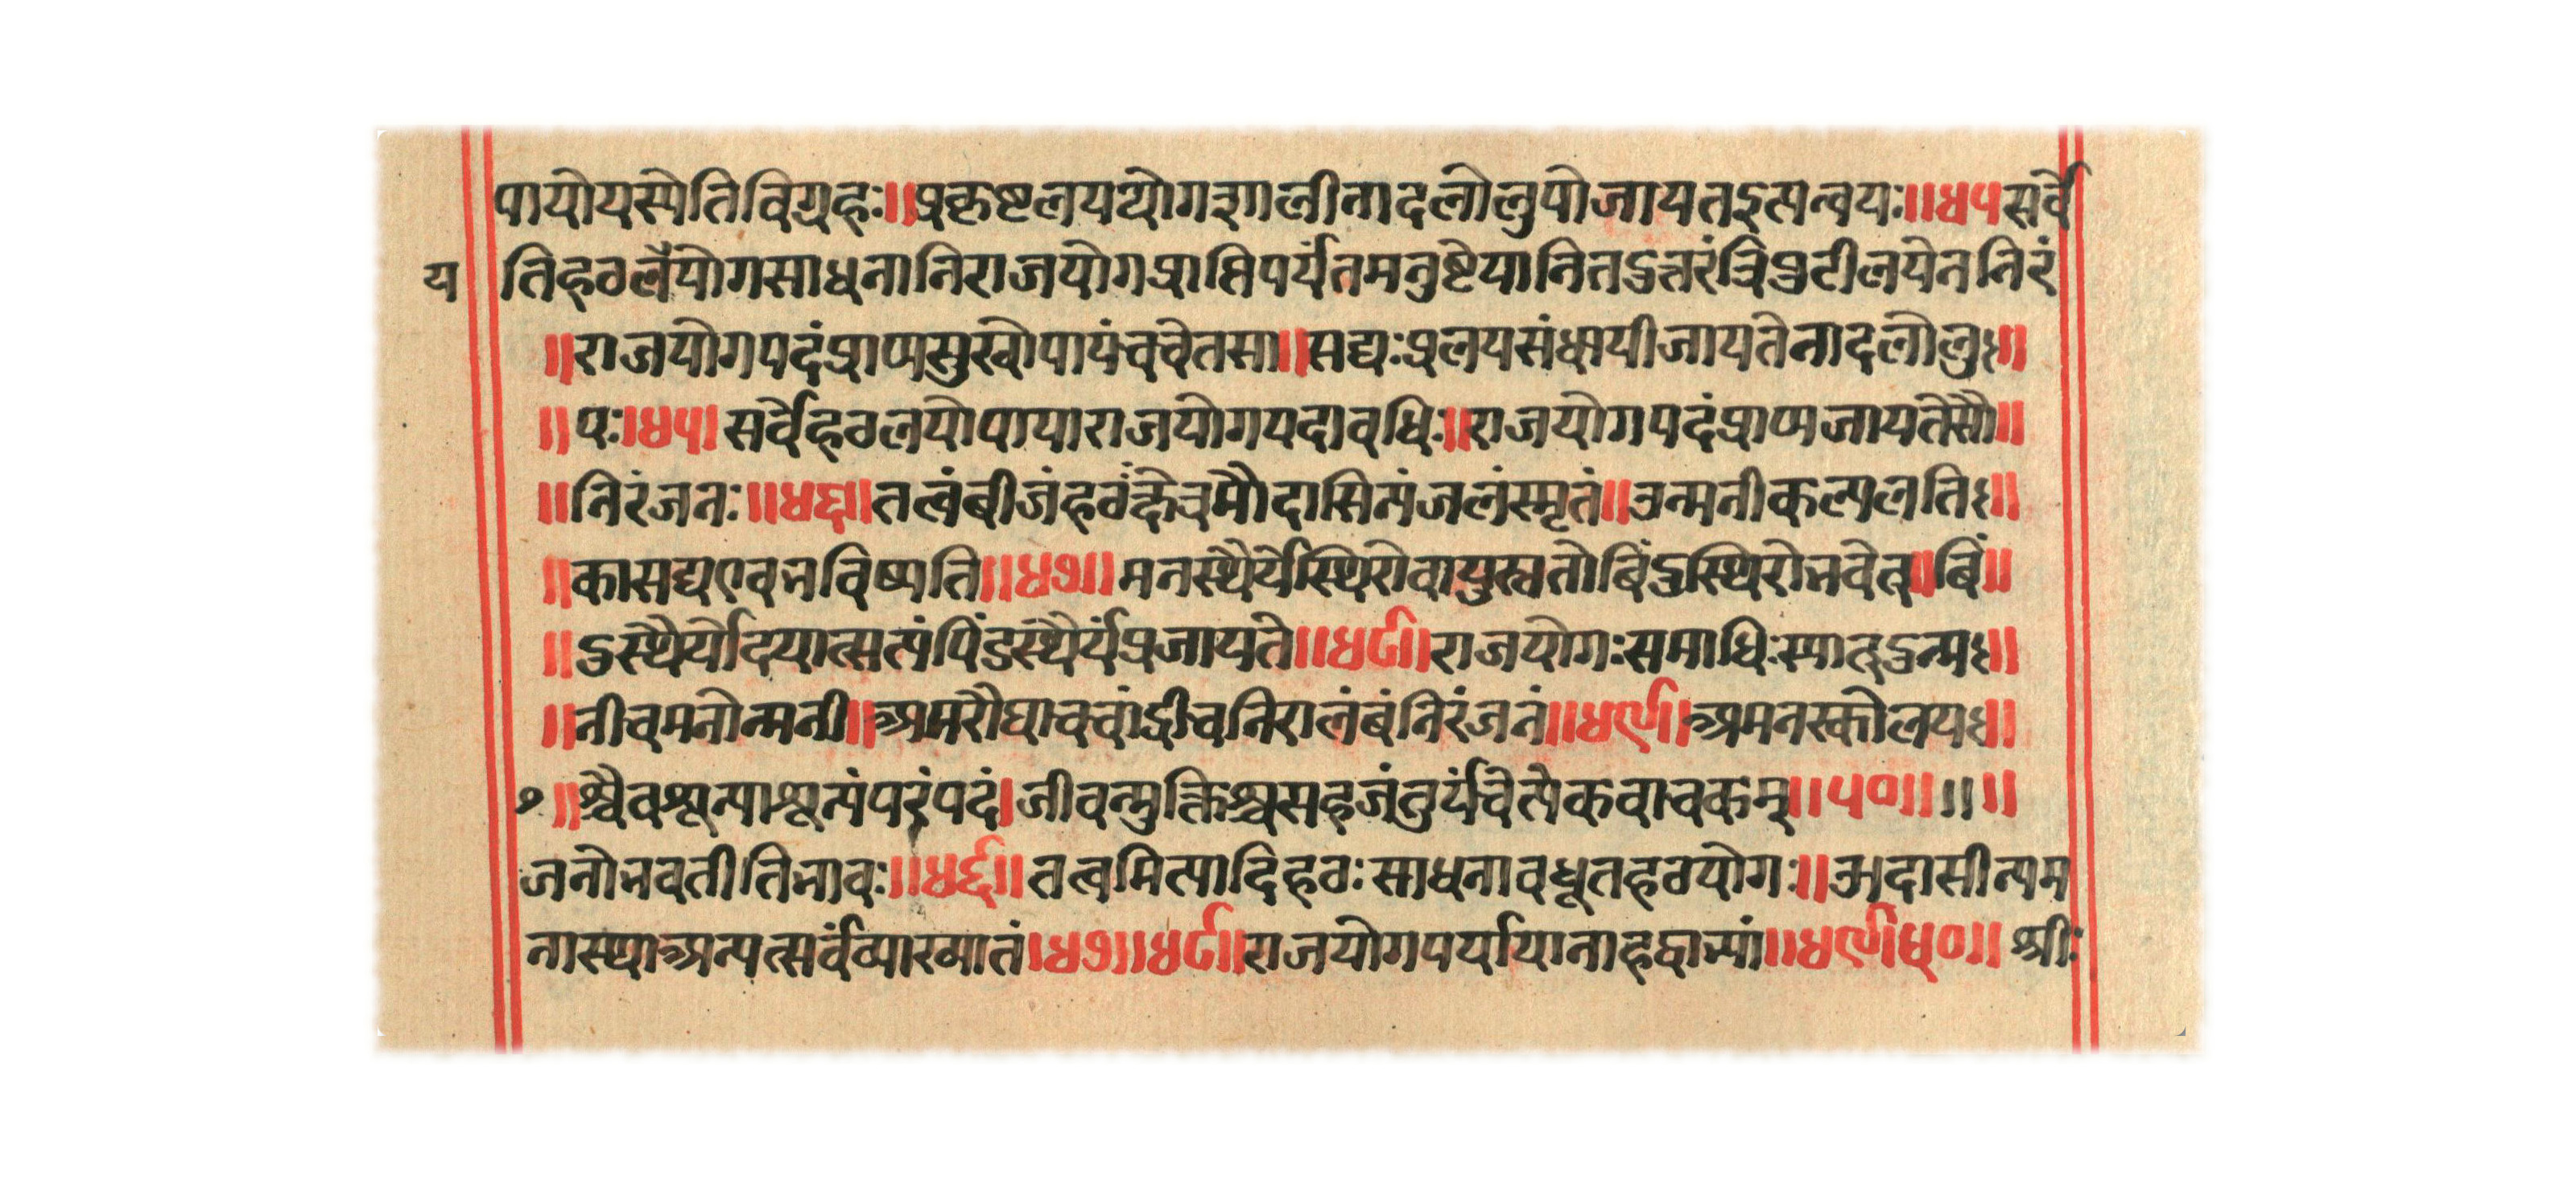 पायोयस्येतिविग्रहः॥प्रकृष्टलययोगशालीनादलोलुपोजायतइत्यन्वयः॥४५सर्वे
य तिहठलैयोगसाधनानिराजयोगप्राप्तिपर्यंतमनुष्टेयानितदुत्तरंत्रिपुटीलयेननिरं
॥राजयोगपदंप्राप्यसुखोपायंचचेतसा॥सद्यःप्रलयसंधायीजायतेनादलोलु॥
॥पः।४५।सर्वेहठलयोपायाराजयोगपदावधिः॥राजयोगपदंप्राप्यजायतेसौ॥
॥निरंजनः॥४६॥तत्वंबीजंहठंक्षेत्रमौदासिन्यंजलंस्मृतं॥उन्मनीकल्पलति॥
॥कासद्यएवभविष्यति॥४७॥मनस्थैर्येस्थिरोवायुस्त्वतोबिंदुस्थिरोभवेत्॥बिं॥
॥दुस्थैर्योदयात्सत्यंपिंडस्थैर्यंप्रजायते॥४८॥राजयोगःसमाधिःस्यात्उन्म॥
॥नीचमनोन्मनी॥अमरौघाचचांद्रीचनिरालंबंनिरंजनं॥४९॥अमनस्कोलय॥
॥श्चैवशून्याशून्यंपरंपदं।जीवन्मुक्तिश्चसहजंतुर्यंचेत्येकवाचकम्॥५०॥॥॥
जनोभवतीतिभावः॥४६॥तत्वमित्यादिहठःसाधनावधूतहठयोगः॥औदासीन्यम
नास्थाअन्यत्सर्वंव्याख्यातं।४७॥४८॥राजयोगपर्यायानाहद्वाभ्यां॥४९॥५०॥श्रीः